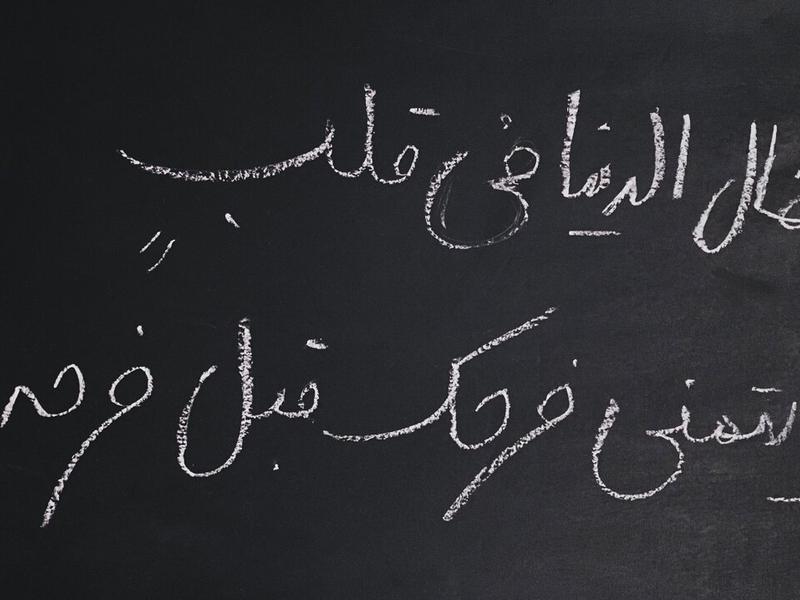 الدنيا في قلبٍ
يتمنى فرحك قبل فرحه